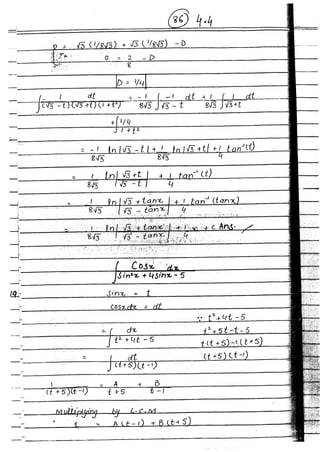 86 4.4
0 = √3 (1/8√3) + √3 (1/8√3) - D
0 = 2/8 - D
D = 1/4
∫ dt/((√3 - t)(√3 + t)(1 + t²)) = -1/8√3 ∫ -1/(√3 - t) dt + 1/8√3 ∫ 1/(√3 + t) dt
+ ∫ 1/4/(1 + t²)
= -1/8√3 ln|√3 - t| + 1/8√3 ln|√3 + t| + 1/4 tan⁻¹(t)
= 1/8√3 ln|(√3 + t)/(√3 - t)| + 1/4 tan⁻¹(t)
= 1/8√3 ln|(√3 + tanx)/(√3 - tanx)| + 1/4 tan⁻¹(tanx)
= 1/8√3 ln|(√3 + tanx)/(√3 - tanx)| + 1/4 x + c Ans.
∫ Cosx dx/(Sin²x + 4sinx - 5)
19.- Sinx = t
Cosx dx = dt
∵ t² + 4t - 5
= ∫ dx/(t² + 4t - 5) t² + 5t - t - 5
t(t + 5) - 1(t + 5)
= ∫ dt/((t + 5)(t - 1)) (t + 5)(t - 1)
1/((t + 5)(t - 1)) = A/(t + 5) + B/(t - 1)
Multiplying by L.C.M
1 = A(t - 1) + B(t + 5)